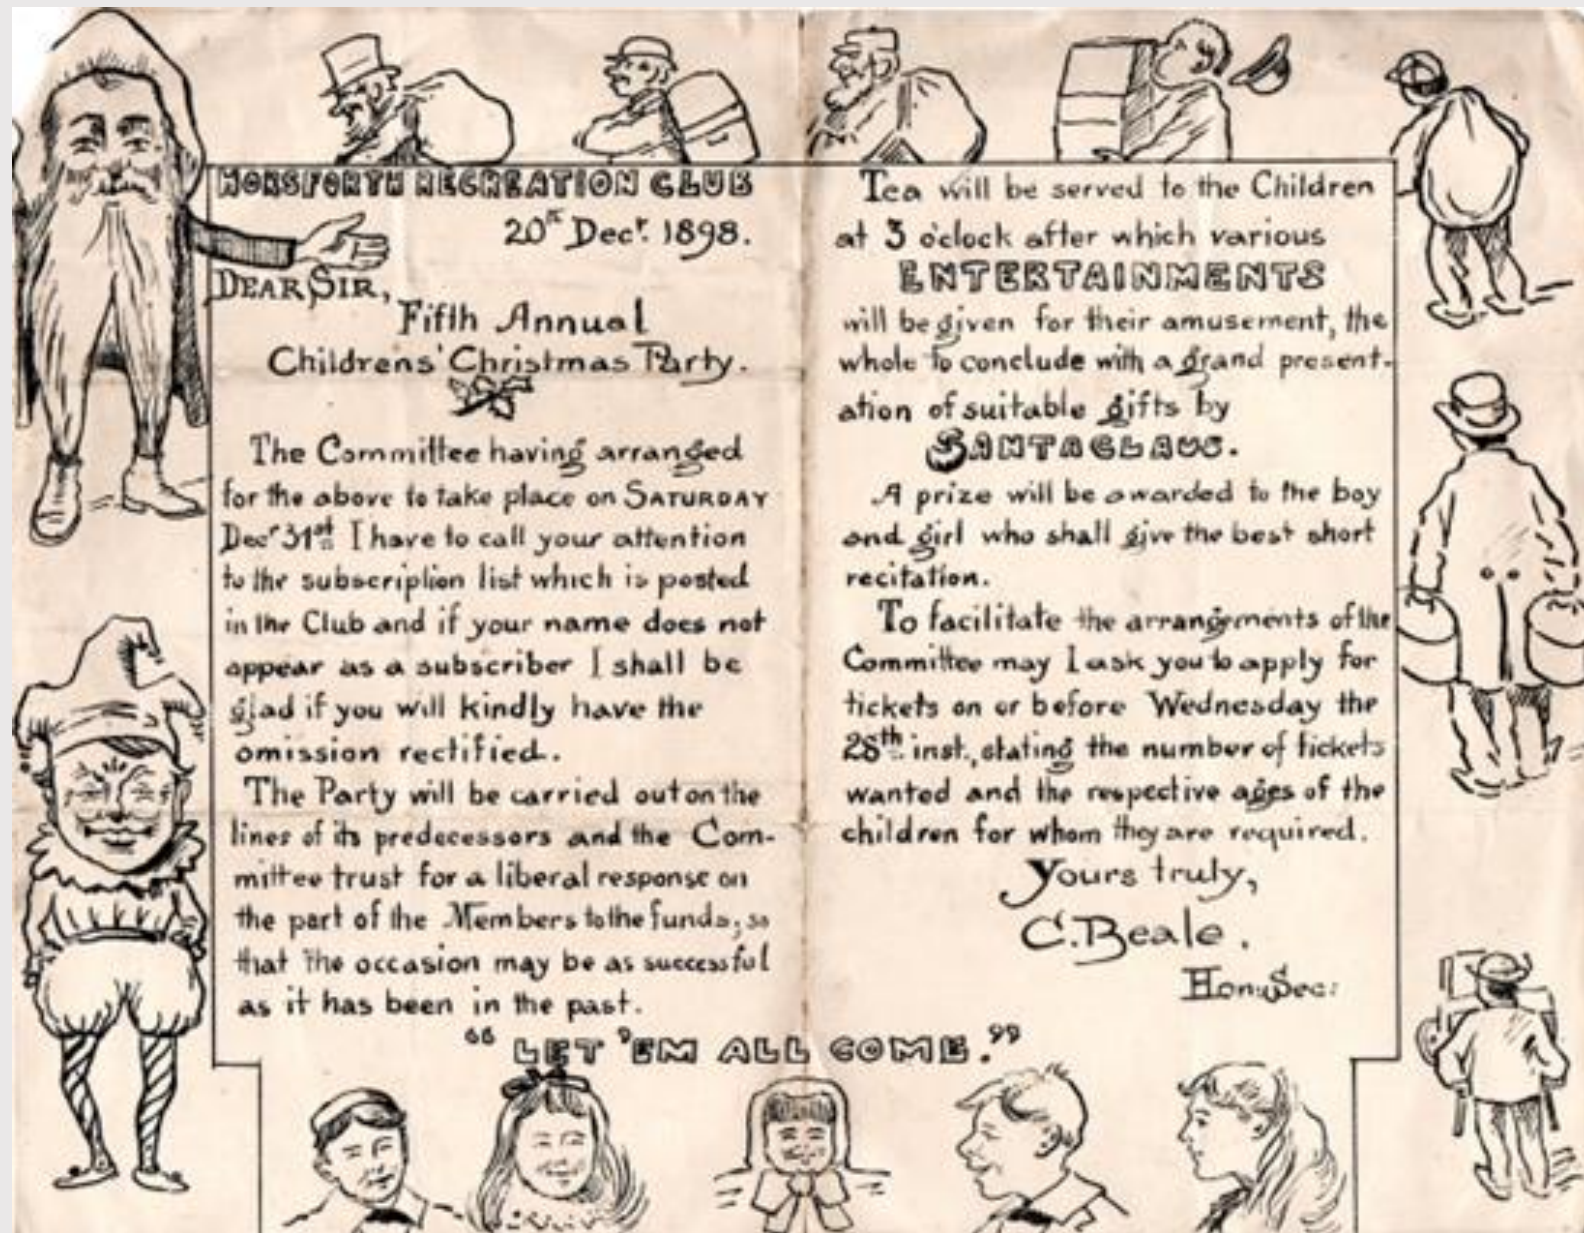 HORSFORTH RECREATION CLUB
20th Decr. 1898.
DEAR SIR,
Fifth Annual
Childrens' Christmas Party.
The Committee having arranged
for the above to take place on SATURDAY
Decr 31st I have to call your attention
to the subscription list which is posted
in the Club and if your name does not
appear as a subscriber I shall be
glad if you will kindly have the
omission rectified.
The Party will be carried out on the
lines of its predecessors and the Com-
mittee trust for a liberal response on
the part of the Members to the funds, so
that the occasion may be as successful
as it has been in the past.
Tea will be served to the Children
at 3 o'clock after which various
ENTERTAINMENTS
will be given for their amusement, the
whole to conclude with a grand present-
ation of suitable gifts by
SANTACLAUS.
A prize will be awarded to the boy
and girl who shall give the best short
recitation.
To facilitate the arrangements of the
Committee may I ask you to apply for
tickets on or before Wednesday the
28th inst., stating the number of tickets
wanted and the respective ages of the
children for whom they are required.
Yours truly,
C. Beale.
Hon: Sec:
"LET 'EM ALL COME."